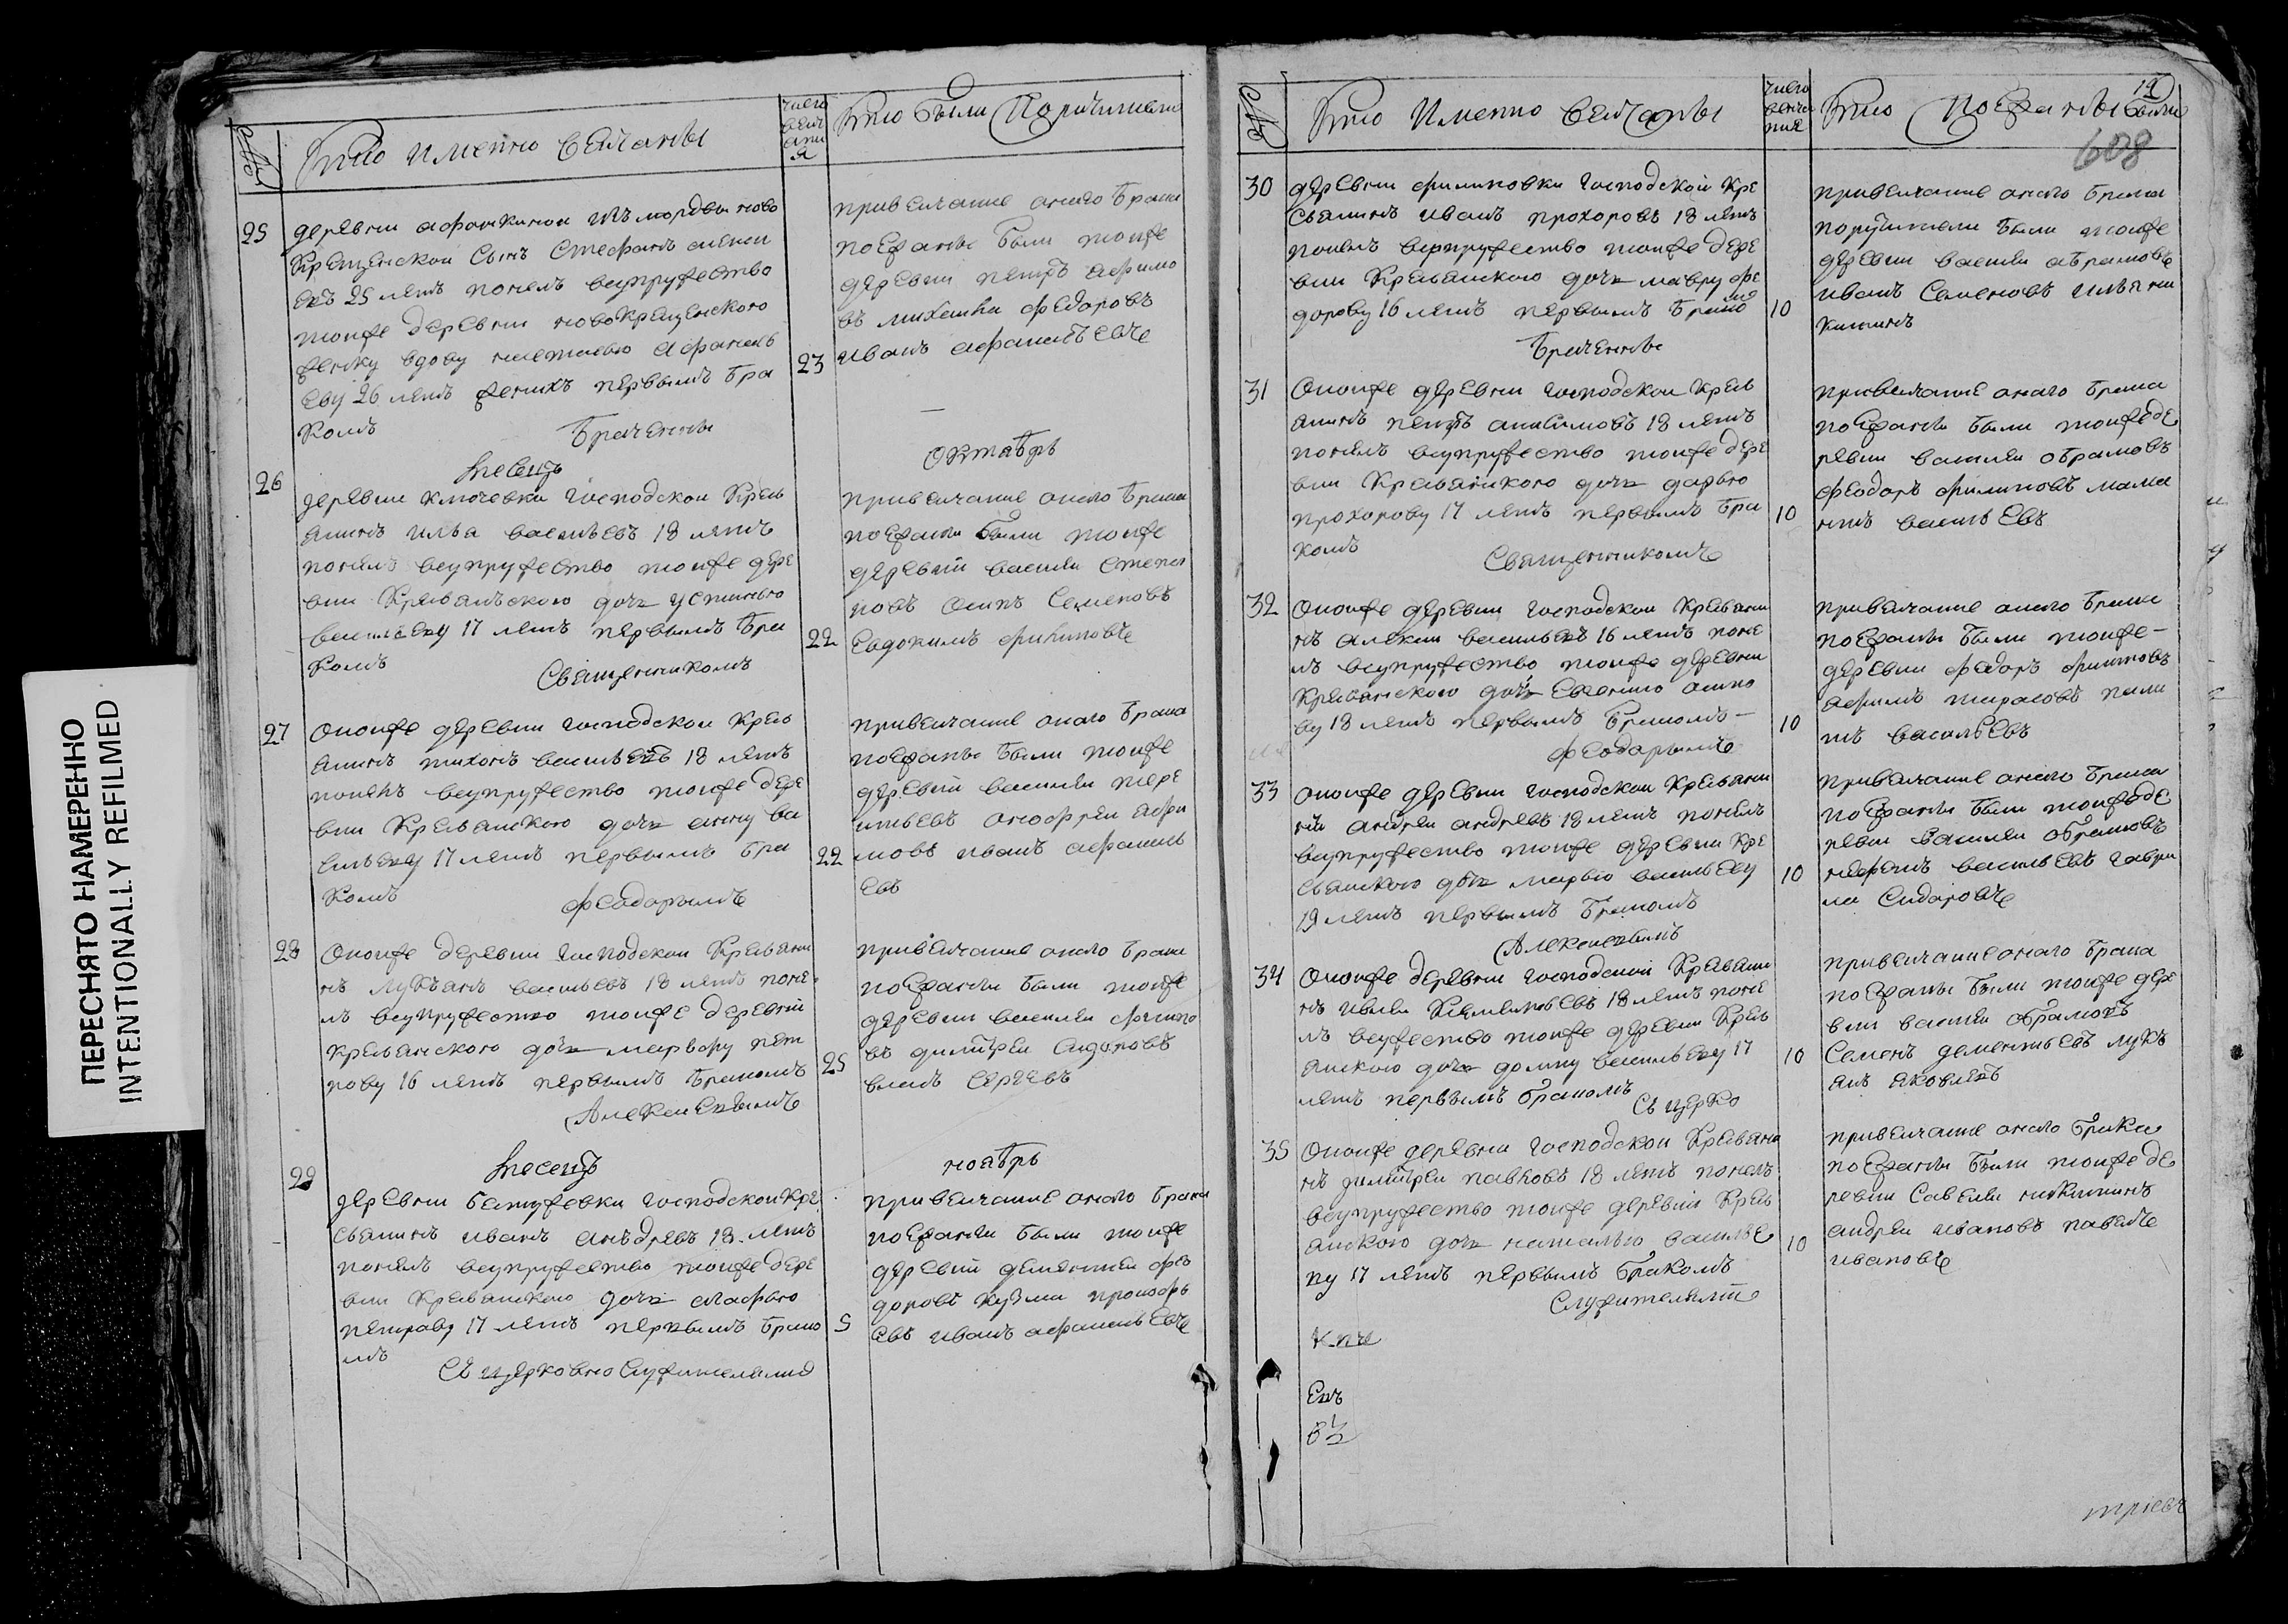 ПЕРЕСНЯТО НАМЕРЕННО
INTENTIONALLY REFILMED
№
Кто имянно венчаны
число
венч
ани
я
Кто были поручители
25
деревни афонкиной изъ мордвы ново
крещенской сынъ Стефанъ алексе
евъ 25 летъ понелъ всупружество
тоиже деревни новокрещенского
женку вдову настасью афанась
еву 26 летъ жених первымъ бра
комъ
Браченны
23
привенчание онаго брака
поезжаны были тоиже
деревни петръ ефимо
въ михаила федоровъ
иванъ афанасьевъ
26
месецъ
октябрь
деревни ключевки господской крест
янинъ илья васильевъ 18 летъ
понелъ всупружество тоиже дере
вни крестьянского дочь устинью
васильеву 17 летъ первымъ бра
комъ
Священникомъ
22
привенчание онаго брака
поезжаны были тоиже
деревни василеи степа
новъ осипъ Семеновъ
Евдокимъ филиповъ
27
Оноиже деревни господской крест
янинъ тихонъ васильевъ 18 летъ
понелъ всупружество тоиже дере
вни крестьянского дочь анну ва
сильеву 17 летъ первымъ бра
комъ
феодорымъ
22
привенчание онаго брака
поезжаны были тоиже
деревни василеи тере
нтьевъ онофреи ефи
мовъ иванъ афанась
евъ
28
Оноиже деревни господской крестьяни
нъ лукьянъ васильевъ 18 летъ поне
лъ всупружество тоиже деревни
крестьянского дочь марвору пет
рову 16 летъ первымъ бракомъ
Алексеевымъ
25
привенчание онаго брака
поезжаны были тоиже
деревни василеи филипо
въ димитреи Сидоровъ
власъ Сергеевъ
29
месецъ
ноябрь
деревни бетужевки господской кре
стьянинъ иванъ анъдревъ 18 летъ
понелъ всупружество тоиже дере
вни крестьянского дочь агафью
петрову 17 летъ первымъ брако
мъ
Съ церковно служителями
5
привенчание онаго брака
поезжаны были тоиже
деревни дементеи фео
доровъ кузма прокофь
евъ иванъ афанасьевъ
№
Кто имянно венчаны
число
венча
ние
Кто поезжаны были
19
608
30
деревни филиповки господской кре
стьянинъ иванъ прохоровъ 18 летъ
понелъ всупружество тоиже дере
вни крестьянского дочь мавру фе
дорову 16 летъ первымъ брако
мъ
браченны
10
привенчание онаго брака
поручители были тоиже
деревни василеи абрамовъ
иванъ Семеновъ илья ни
китинъ
31
Оноиже деревни господской крест
янинъ петръ анисимовъ 18 летъ
понелъ всупружество тоиже дере
вни крестьянского дочь дарью
прохорову 17 летъ первымъ бра
комъ
Священникомъ
10
привенчание онаго брака
поезжаны были тоиже де
ревни василеи абрамовъ
феодоръ филиповъ мама
нтъ васильевъ
32
Оноиже деревни господской крестьяни
нъ алексеи васильевъ 16 летъ поне
лъ всупружество тоиже деревни
крестьянского дочь Евгению осипо
ву 18 летъ первымъ бракомъ
феодорымъ
10
привенчание онаго брака
поезжаны были тоиже
деревни федоръ филиповъ
ефимъ тарасовъ
васильевъ
33
оноиже деревни господской крестьяни
нъ андреи андревъ 18 летъ понелъ
всупружество тоиже деревни кре
стьянского дочь марью васильеву
19 летъ первымъ бракомъ
Алексеевымъ
10
привенчание онаго брака
поезжаны были тоиже де
ревни василеи абрамовъ
нефедъ васильевъ гаври
ла Сидоровъ
34
Оноиже деревни господской крестьяни
нъ клементьевъ 18 летъ поне
лъ всужество тоиже деревни крест
янского дочь домну васильеву 17
летъ первымъ бракомъ
Съ церко
10
привенчание онаго брака
поезжаны были тоиже дере
вни василеи абрамовъ
Семенъ дементьевъ лукь
янъ яковлевъ
35
Оноиже деревни господской крестьяни
нъ димитреи павловъ 18 летъ понелъ
всупружество тоиже деревни крест
янского дочь наталью василье
ву 17 летъ первымъ бракомъ
Служительми
10
привенчание онаго брака
поезжаны были тоиже де
ревни Савелеи никитинъ
андреи ивановъ павелъ
ивановъ